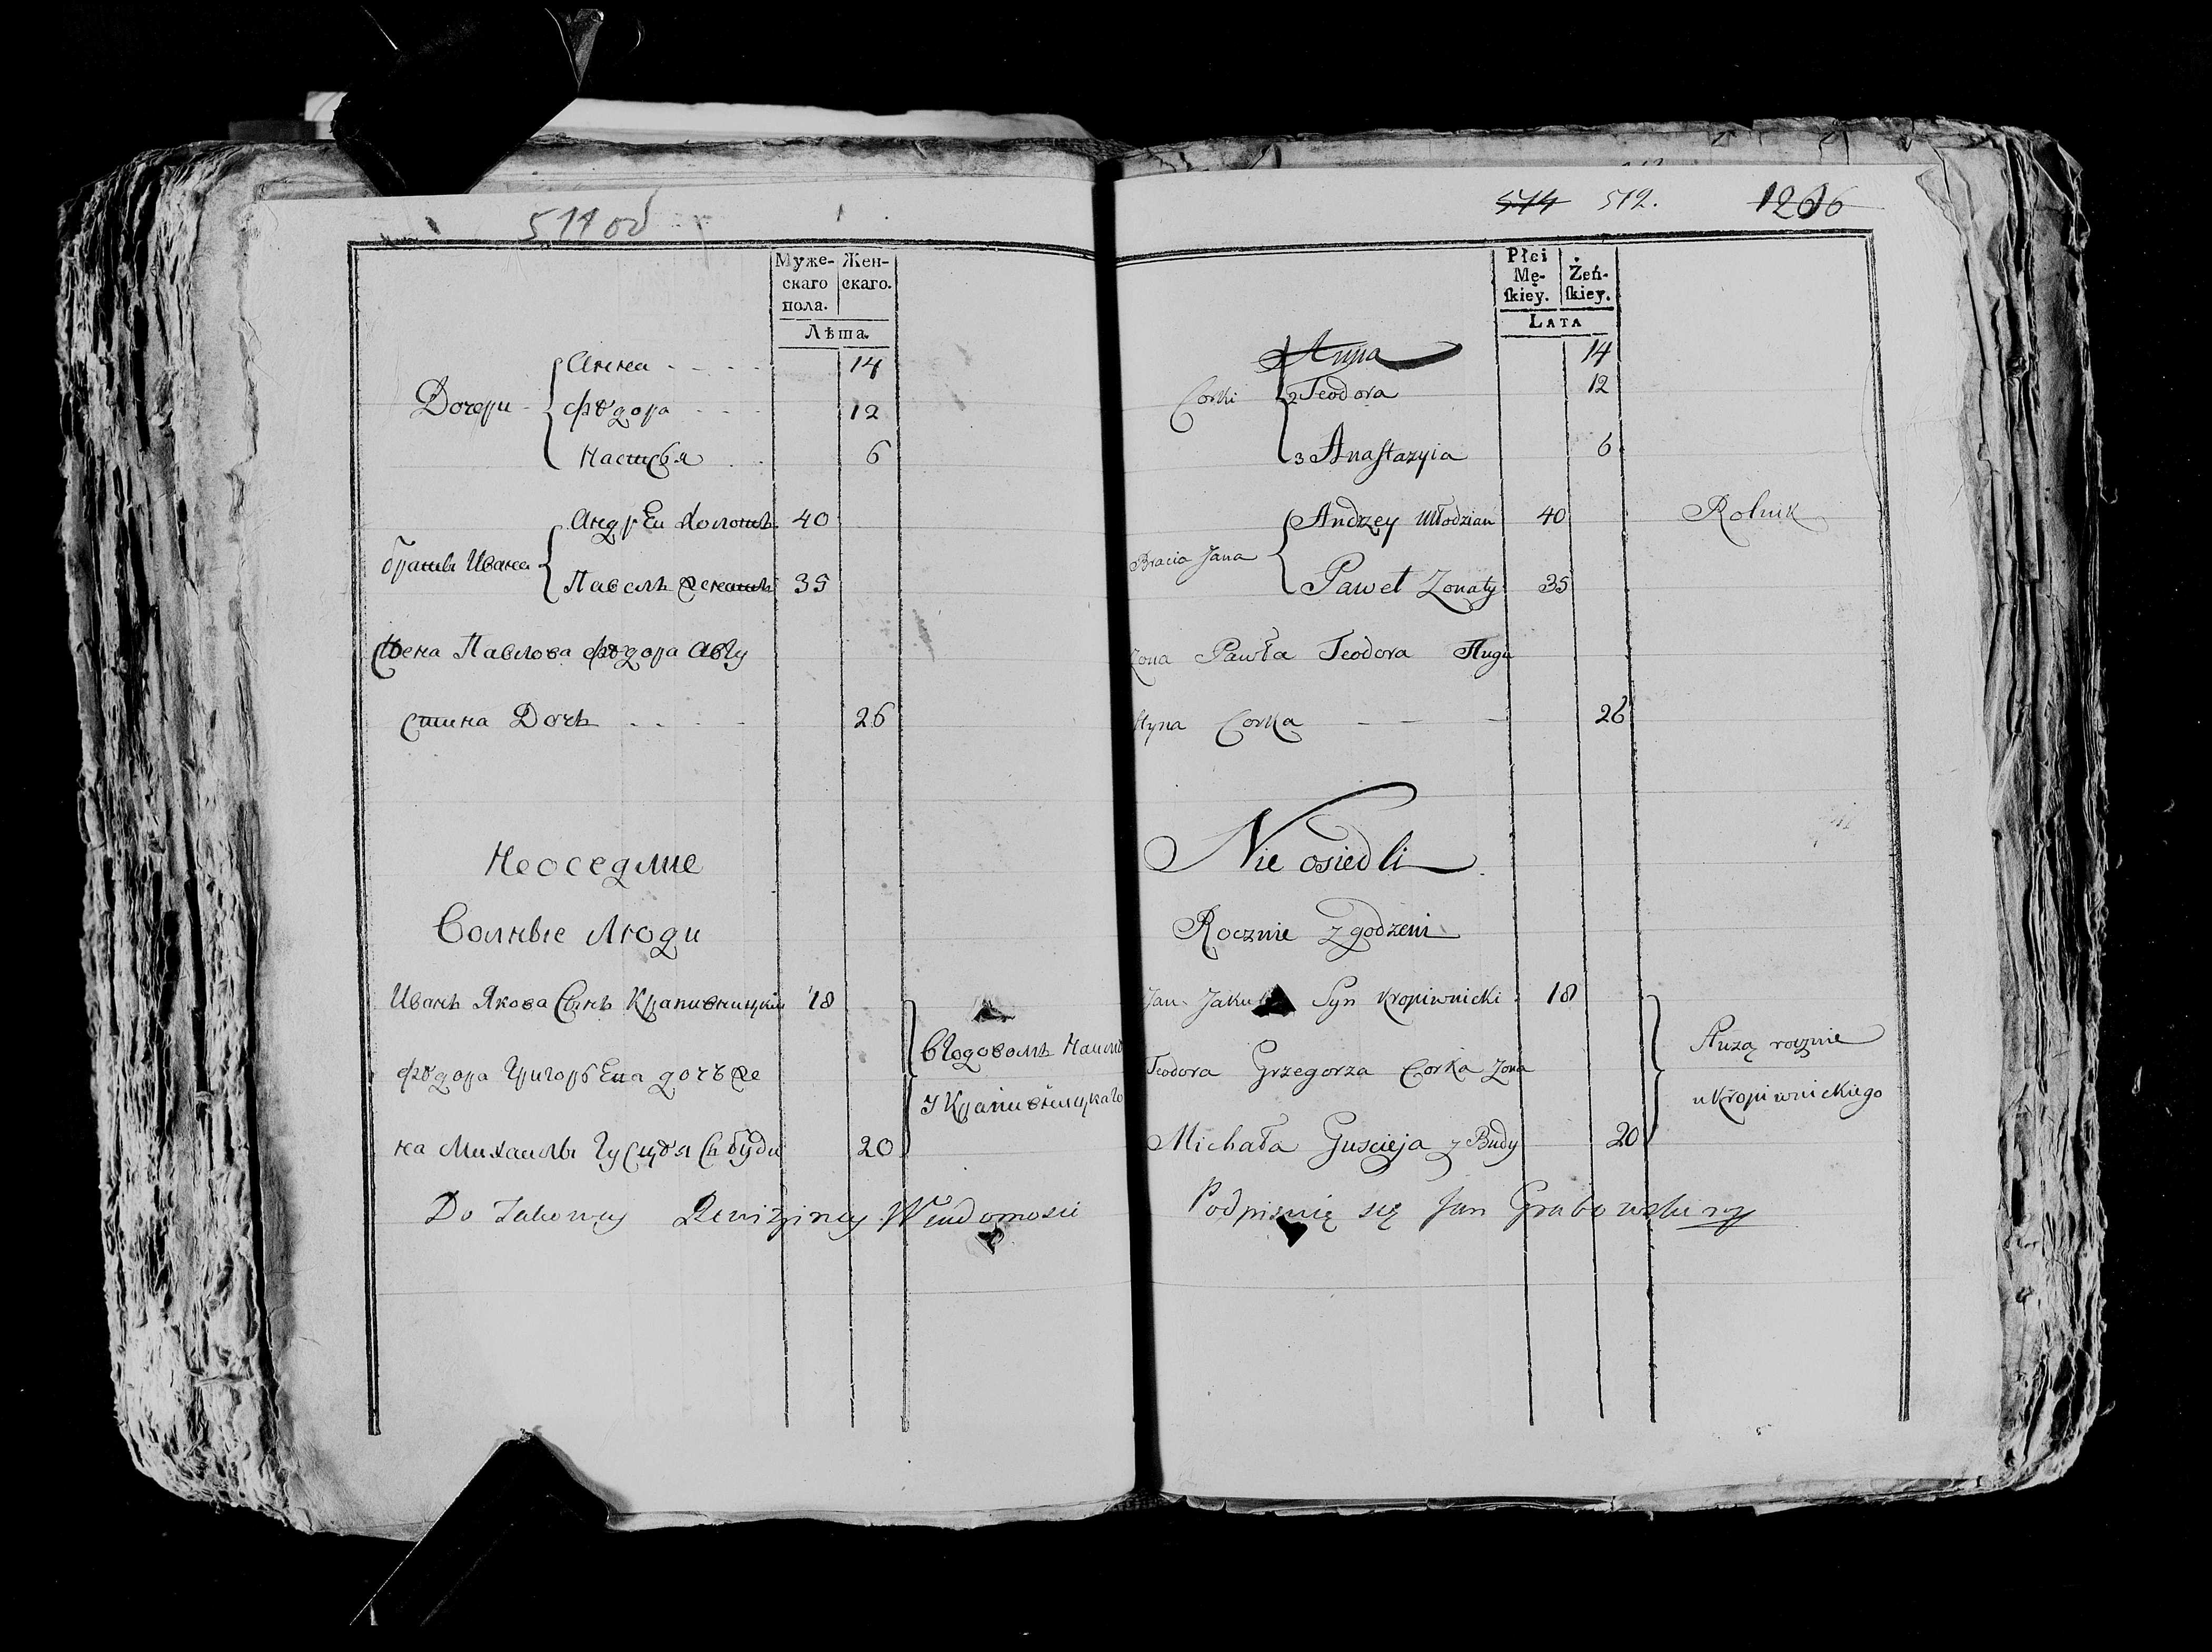 511 об
Муже- Жен-
скаго скаго.
пола.
Лѣта.
Анна - - - - 14
Дочери - Ѳедора - - - 12
Настасья . . 6
Андрей Холоптъ 40
братья Ивана
Павелъ женатъ 35
Жена Павлова Ѳедора Авгу
стина Дочь . . . . 26
Неоседлие
Вольные Люди
Иванъ Якова Сынъ Крапивницкій 18
Ѳедора Григорьева дочь же
на Михаилы Гусцѣя съ буди 20
въ Годовомъ Наимѣ
у Крапивницкаго
Do Takowey Rewizyiney Wiadomosci
574 512. 1206
Płci
Mę- Żeń-
skiey. skiey.
LATA
Anna 14
Corki 2 Teodora 12
3 Anastazyia 6
Andrzey Młodzian 40 Rolnik
Bracia Jana
Paweł Zonaty 35
Zona Pawła Teodora Augu
styna Corka - - - 26
Nie osiedli
Rocznie zgodzeni
Jan Jakuba Syn Kropiwnicki 18
Teodora Grzegorza Corka Zona
Michała Guscieja z Budy 20
Służą rocznie
u Kropiwnickiego
Podpisuię się Jan Grabowski